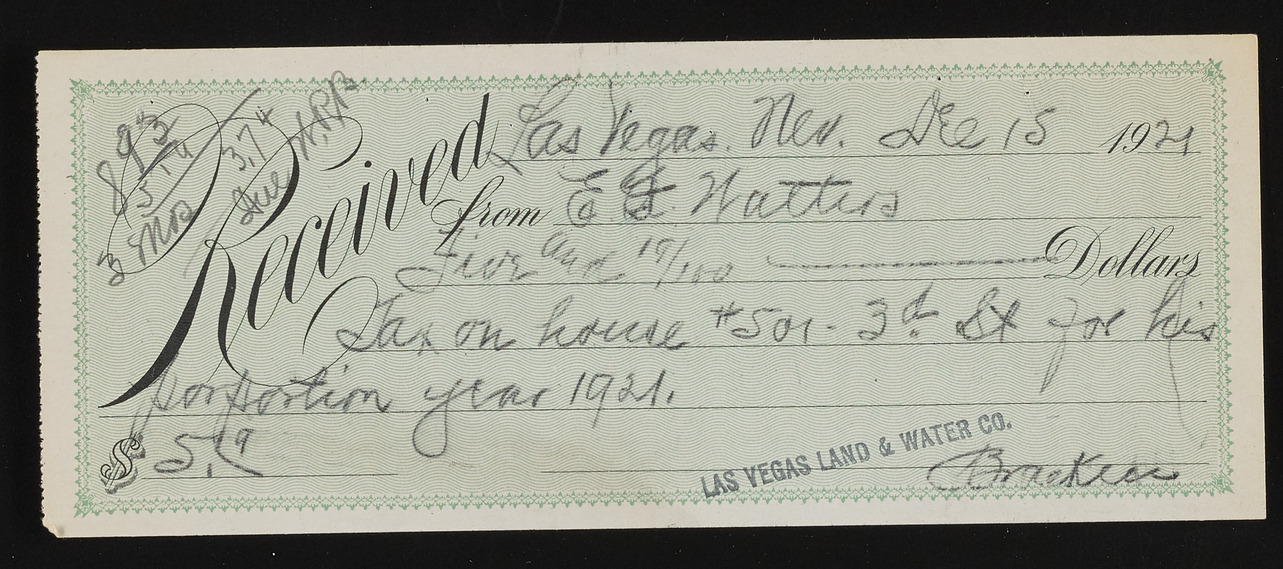 893
3 74
3 Mos
3.74
due
Received Las Vegas. Nev. Dec 15 1921
from E Watters
Five and 19/100 Dollars
Tax on house #501 - 3d St for his
porportion year 1921.
$ 5.19
LAS VEGAS LAND & WATER CO.
Bracken